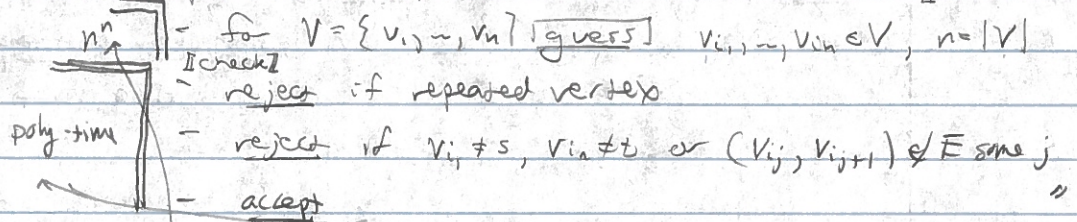 nⁿ - for V = {v₁, ~, vₙ} [guess] vᵢ₁, ~, vᵢₙ ∈ V, n = |V|
[check]
- reject if repeated vertex
poly-time - reject if vᵢ₁ ≠ s, vᵢₙ ≠ t or (vᵢⱼ, vᵢⱼ₊₁) ∉ E some j
- accept